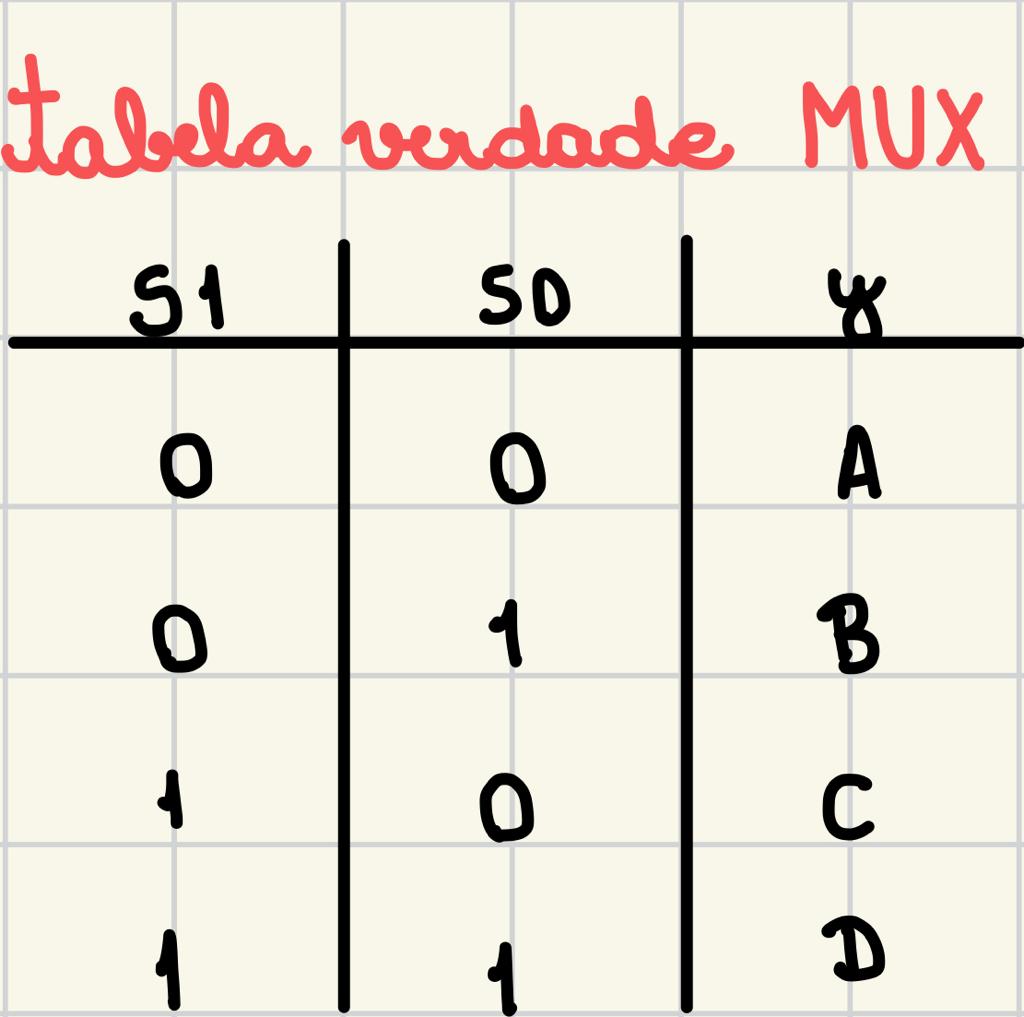 tabela verdade MUX
S1 S0 y
0 0 A
0 1 B
1 0 C
1 1 D